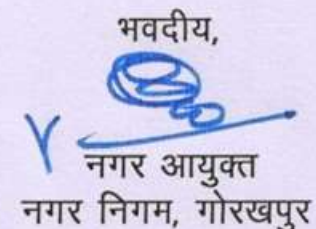 भवदीय,
नगर आयुक्त
नगर निगम, गोरखपुर